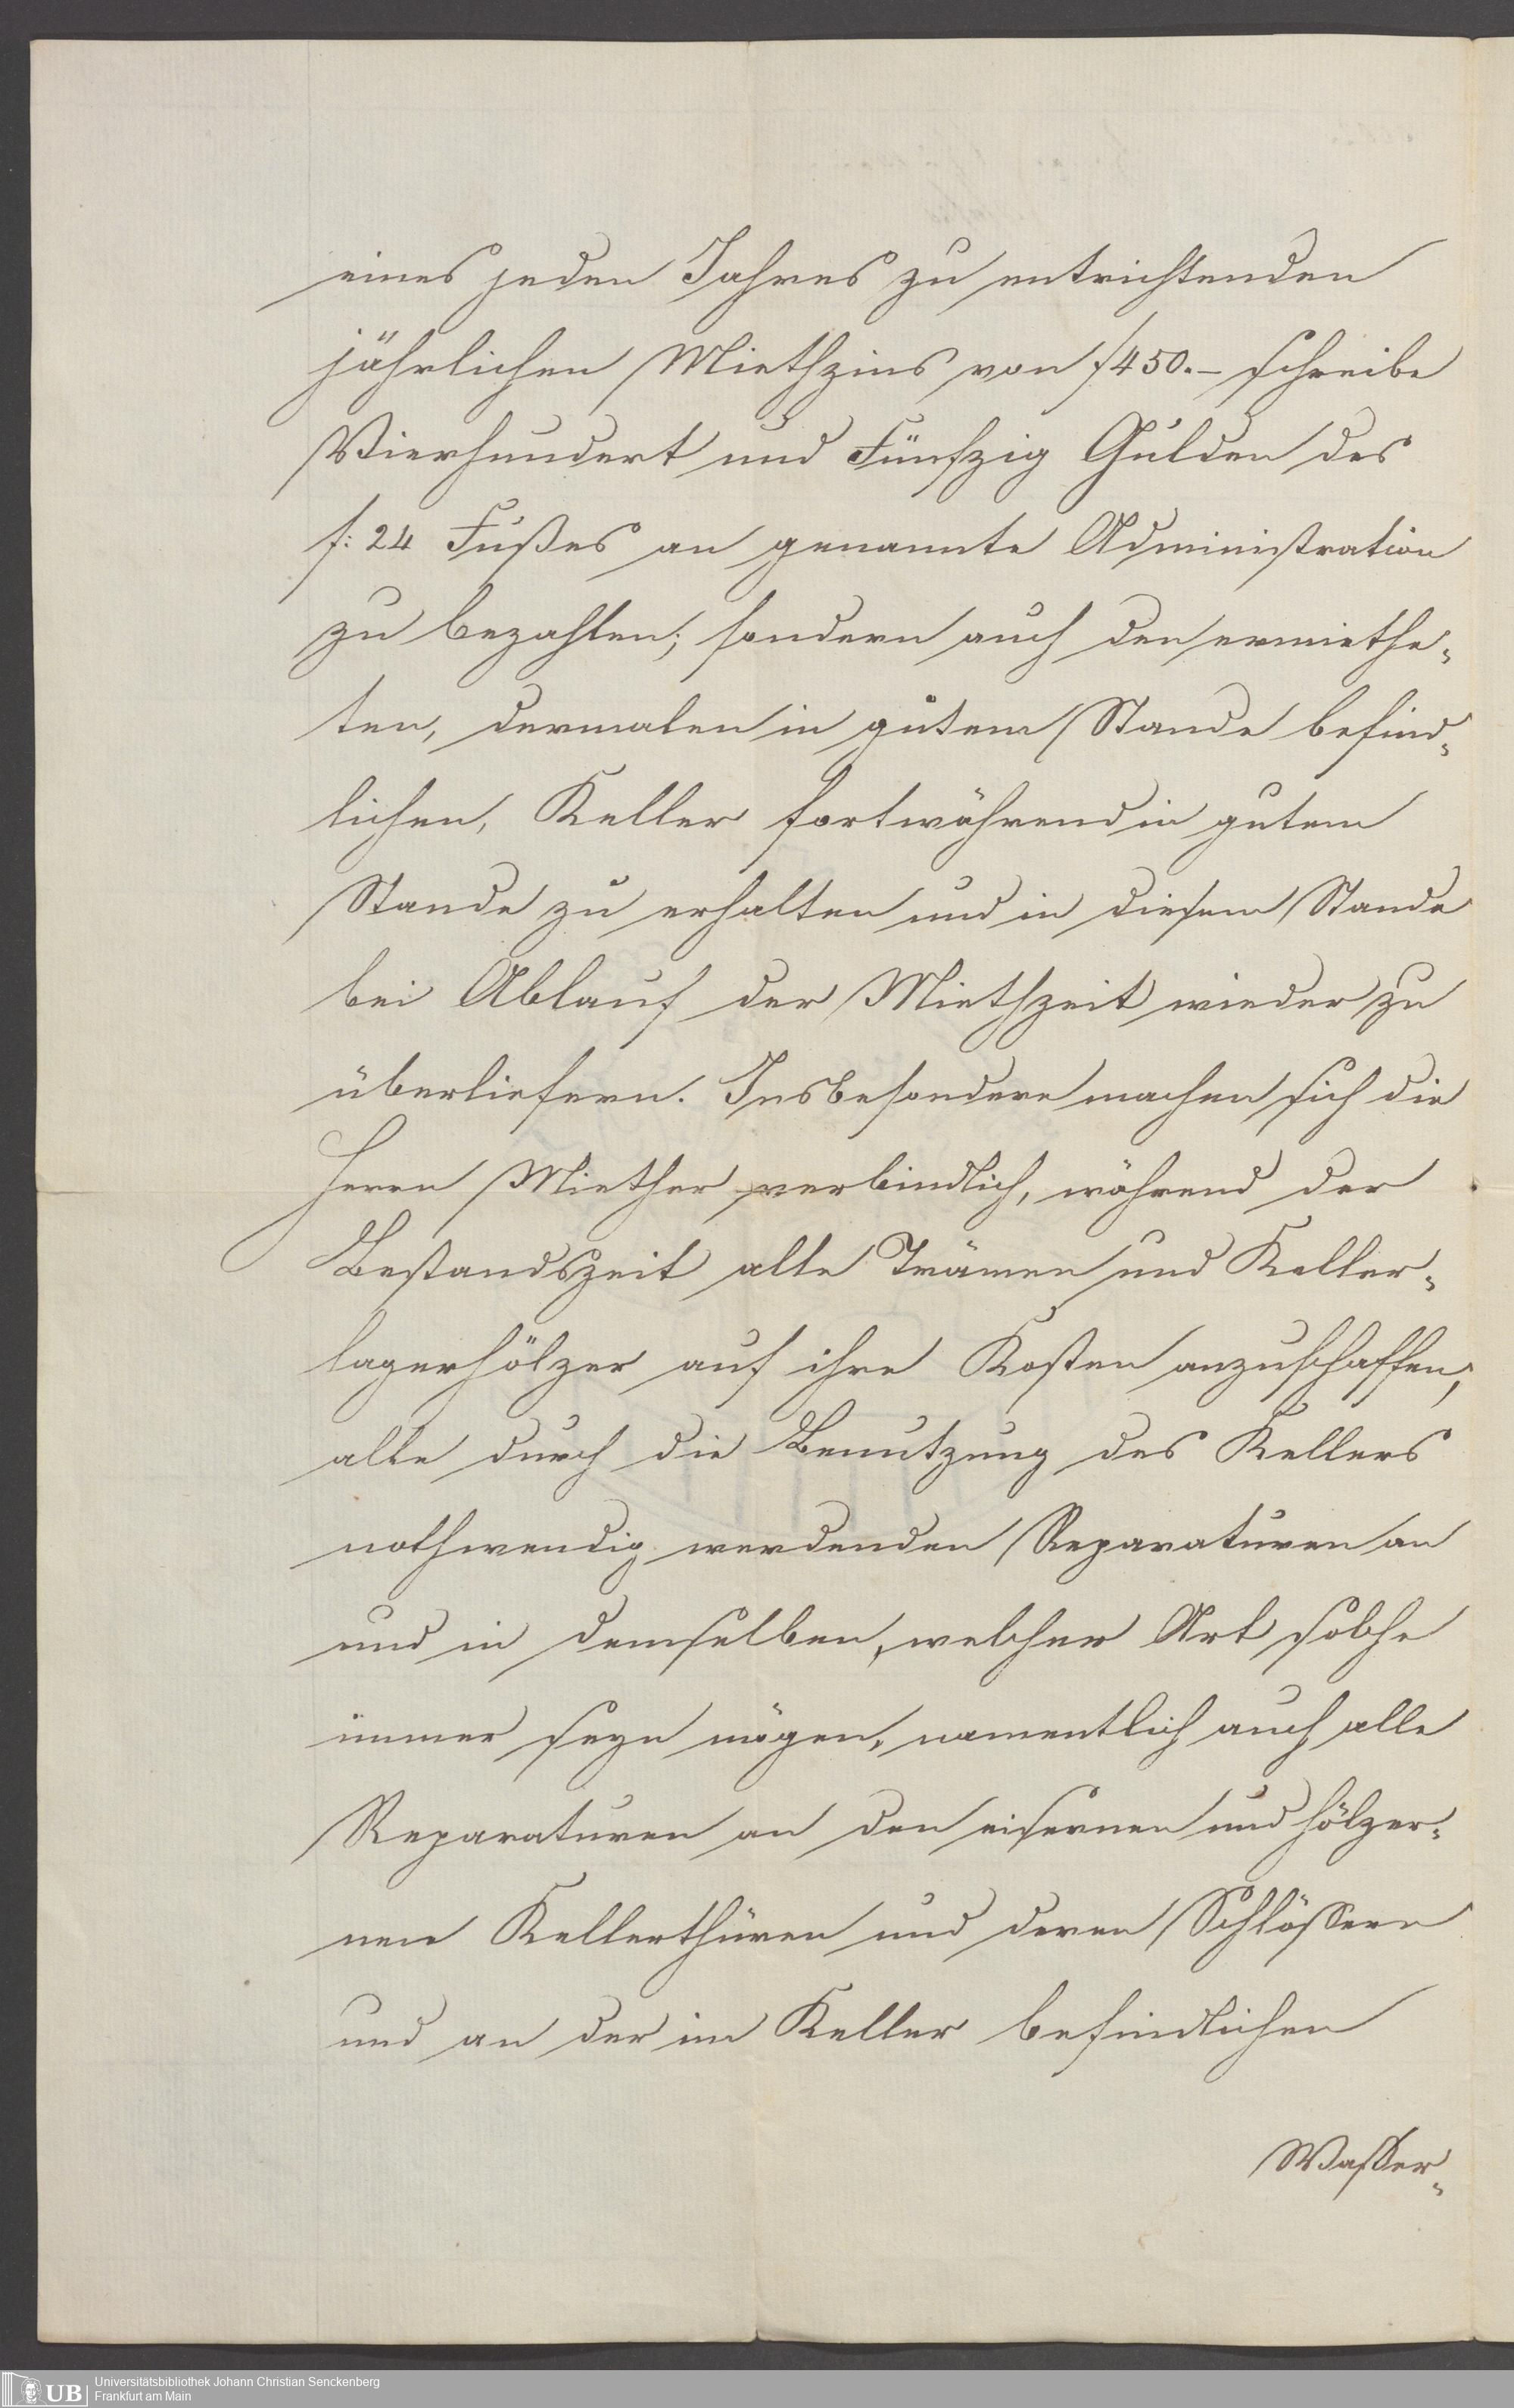 eines jeden Jahres zu entrichtenden
jährlichen Miethzins von f 450.– schreibe
Vierhundert und Fünfzig Gulden des
f: 24 Fußes an genannte Administration
zu bezahlen; sondern auch den ermiethe-
ten, dermalen in gutem Stande befind-
lichen, Keller fortwährend in gutem
Stande zu erhalten und in diesem Stande
bei Ablauf der Miethzeit wieder zu
überliefern. Insbesondere machen sich die
Herrn Miether verbindlich, während der
Bestandszeit alle Trämen und Keller-
lagerhölzer auf ihre Kosten anzuschaffen,
alle durch die Benutzung des Kellers
nothwendig werdenden Reparaturen an
und in demselben, welcher Art solche
immer seyn mögen, namentlich auch alle
Reparaturen an den eisernen und hölzer-
nen Kellerthüren und deren Schlössern
und an der im Keller befindlichen
Wasser-
UB
Universitätsbibliothek Johann Christian Senckenberg
Frankfurt am Main